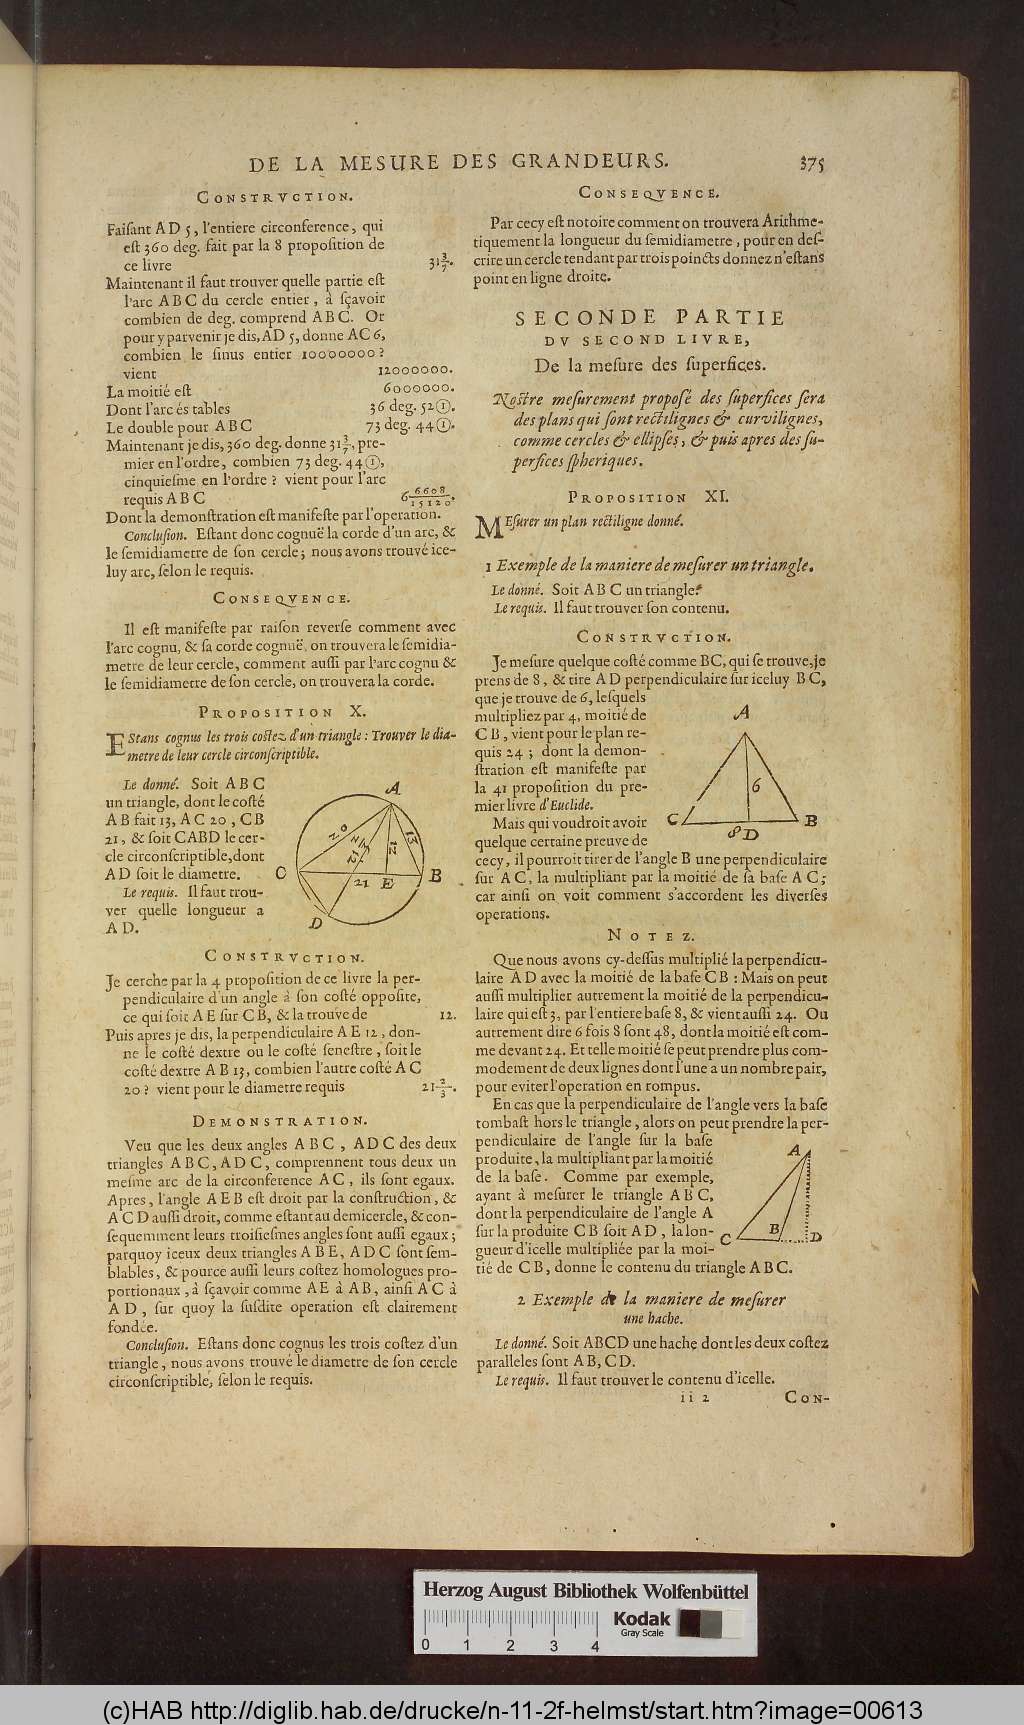 DE LA MESURE DES GRANDEURS. 375
CONSTRVCTION.
Faiſant AD 5, l'entiere circonference, qui
eſt 360 deg. fait par la 8 propoſition de
ce livre 31 3/7.
Maintenant il faut trouver quelle partie eſt
l'arc ABC du cercle entier, à ſçavoir
combien de deg. comprend ABC. Or
pour y parvenir je dis, AD 5, donne AC 6,
combien le ſinus entier 10000000?
vient 12000000.
La moitié eſt 6000000.
Dont l'arc és tables 36 deg. 52①.
Le double pour ABC 73 deg. 44①.
Maintenant je dis, 360 deg. donne 31 3/7, pre-
mier en l'ordre, combien 73 deg. 44①,
cinquieſme en l'ordre? vient pour l'arc
requis ABC 6 6608/15120.
Dont la demonſtration eſt manifeſte par l'operation.
Concluſion. Eſtant donc cognuë la corde d'un arc, &
le ſemidiametre de ſon cercle; nous avons trouvé ice-
luy arc, ſelon le requis.
CONSEQVENCE.
Il eſt manifeſte par raiſon reverſe comment avec
l'arc cognu, & ſa corde cognuë, on trouvera le ſemidia-
metre de leur cercle, comment auſſi par l'arc cognu &
le ſemidiametre de ſon cercle, on trouvera la corde.
PROPOSITION X.
EStans cognus les trois coſtez d'un triangle: Trouver le dia-
metre de leur cercle circonſcriptible.
Le donné. Soit ABC
un triangle, dont le coſté
AB fait 13, AC 20, CB
21, & ſoit CABD le cer-
cle circonſcriptible, dont
AD ſoit le diametre.
Le requis. Il faut trou-
ver quelle longueur a
AD.
A
20
21 2/3
12
13
C
21
E
B
D
CONSTRVCTION.
Je cerche par la 4 propoſition de ce livre la per-
pendiculaire d'un angle à ſon coſté oppoſite,
ce qui ſoit AE ſur CB, & la trouve de 12.
Puis apres je dis, la perpendiculaire AE 12, don-
ne le coſté dextre ou le coſté ſeneſtre, ſoit le
coſté dextre AB 13, combien l'autre coſté AC
20? vient pour le diametre requis 21 2/3.
DEMONSTRATION.
Veu que les deux angles ABC, ADC des deux
triangles ABC, ADC, comprennent tous deux un
meſme arc de la circonference AC, ils ſont egaux.
Apres, l'angle AEB eſt droit par la conſtruction, &
ACD auſſi droit, comme eſtant au demicercle, & con-
ſequemment leurs troiſieſmes angles ſont auſſi egaux;
parquoy iceux deux triangles ABE, ADC ſont ſem-
blables, & pource auſſi leurs coſtez homologues pro-
portionaux, à ſçavoir comme AE à AB, ainſi AC à
AD, ſur quoy la ſuſdite operation eſt clairement
fondée.
Concluſion. Eſtans donc cognus les trois coſtez d'un
triangle, nous avons trouvé le diametre de ſon cercle
circonſcriptible, ſelon le requis.
CONSEQVENCE.
Par cecy eſt notoire comment on trouvera Arithme-
tiquement la longueur du ſemidiametre, pour en deſ-
crire un cercle tendant par trois poincts donnez n'eſtans
point en ligne droite.
SECONDE PARTIE
DV SECOND LIVRE,
De la meſure des ſuperfices.
Noſtre meſurement propoſé des ſuperfices ſera
des plans qui ſont rectilignes & curvilignes,
comme cercles & ellipſes, & puis apres des ſu-
perfices ſpheriques.
PROPOSITION XI.
MEſurer un plan rectiligne donné.
1 Exemple de la maniere de meſurer un triangle.
Le donné. Soit ABC un triangle.
Le requis. Il faut trouver ſon contenu.
CONSTRVCTION.
Je meſure quelque coſté comme BC, qui ſe trouve, je
prens de 8, & tire AD perpendiculaire ſur iceluy BC,
que je trouve de 6, leſquels
multipliez par 4, moitié de
CB, vient pour le plan re-
quis 24; dont la demon-
ſtration eſt manifeſte par
la 41 propoſition du pre-
mier livre d'Euclide.
Mais qui voudroit avoir
quelque certaine preuve de
A
6
C
8
D
B
cecy, il pourroit tirer de l'angle B une perpendiculaire
ſur AC, la multipliant par la moitié de ſa baſe AC;
car ainſi on voit comment s'accordent les diverſes
operations.
NOTEZ.
Que nous avons cy-deſſus multiplié la perpendicu-
laire AD avec la moitié de la baſe CB: Mais on peut
auſſi multiplier autrement la moitié de la perpendicu-
laire qui eſt 3, par l'entiere baſe 8, & vient auſſi 24. Ou
autrement dire 6 fois 8 ſont 48, dont la moitié eſt com-
me devant 24. Et telle moitié ſe peut prendre plus com-
modement de deux lignes dont l'une a un nombre pair,
pour eviter l'operation en rompus.
En cas que la perpendiculaire de l'angle vers la baſe
tombaſt hors le triangle, alors on peut prendre la per-
pendiculaire de l'angle ſur la baſe
produite, la multipliant par la moitié
de la baſe. Comme par exemple,
ayant à meſurer le triangle ABC,
dont la perpendiculaire de l'angle A
ſur la produite CB ſoit AD, la lon-
gueur d'icelle multipliée par la moi-
tié de CB, donne le contenu du triangle ABC.
A
C
B
D
2 Exemple de la maniere de meſurer
une hache.
Le donné. Soit ABCD une hache dont les deux coſtez
paralleles ſont AB, CD.
Le requis. Il faut trouver le contenu d'icelle.
ii 2 CON-
Herzog August Bibliothek Wolfenbüttel
0 1 2 3 4
Kodak
Gray Scale
(c)HAB http://diglib.hab.de/drucke/n-11-2f-helmst/start.htm?image=00613